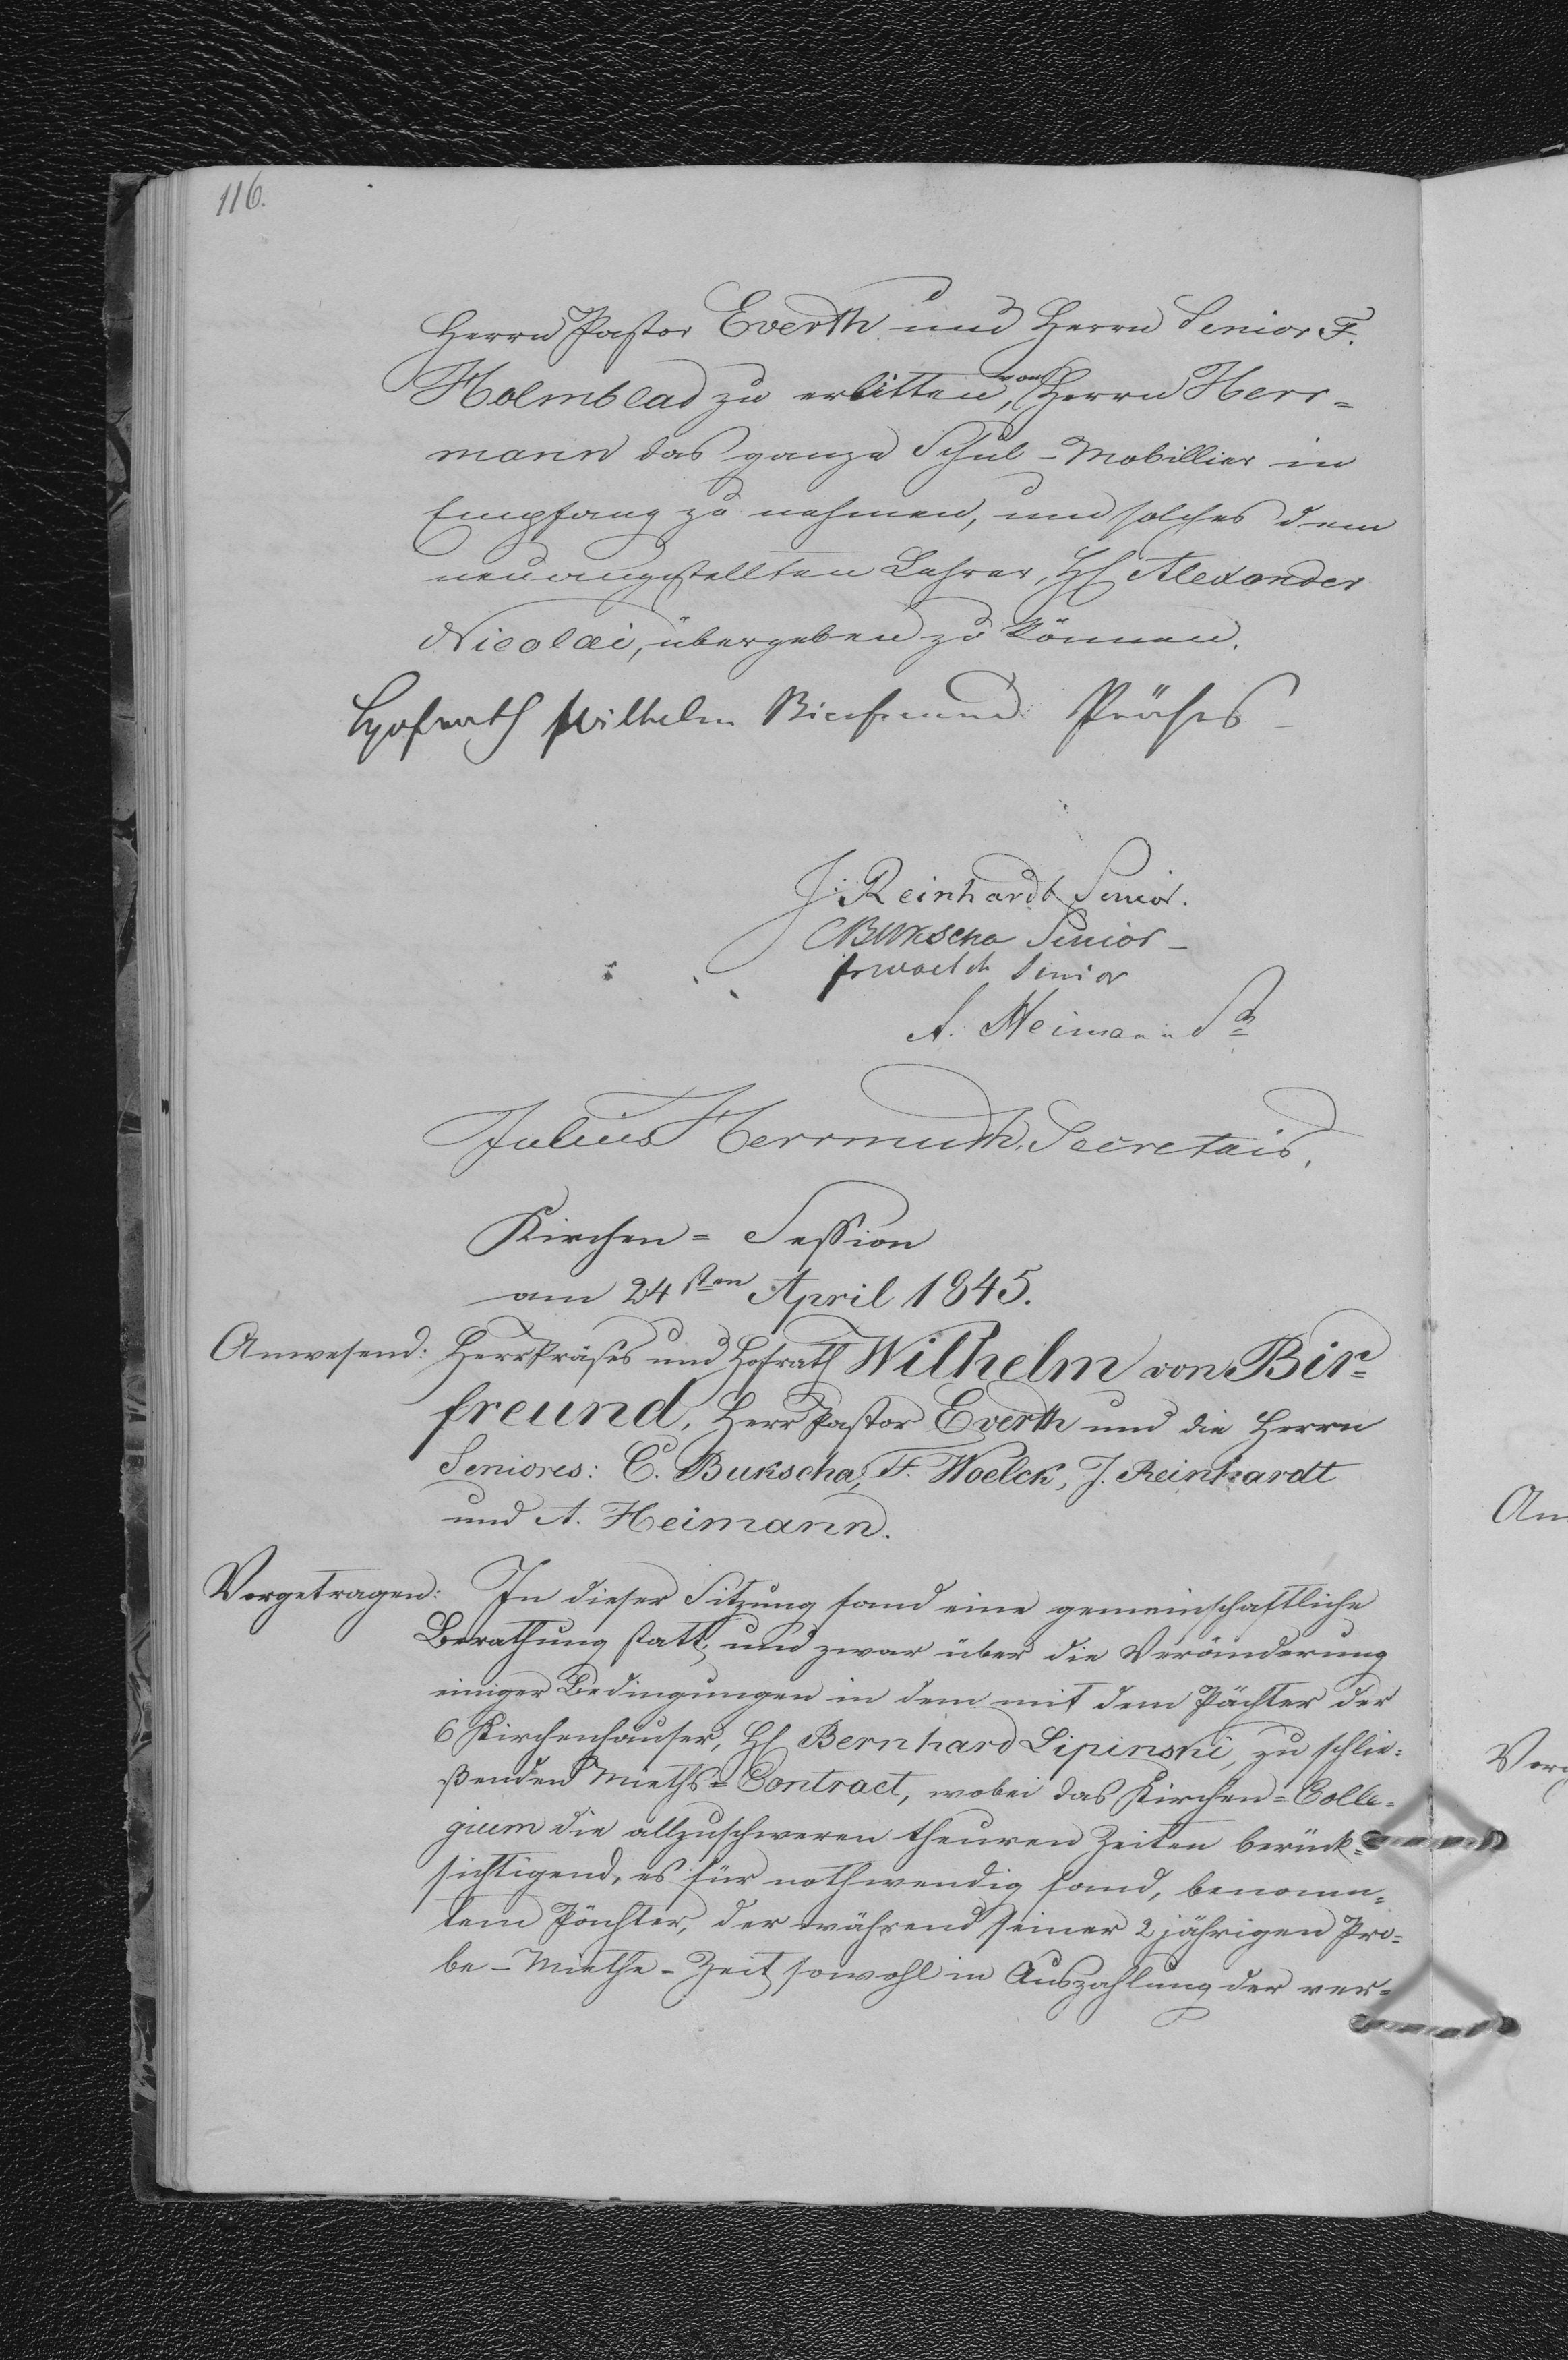 116.
Herrn Pastor Everth und Herrn Senior F.
Holmblad zu erbitten, von Herrn Herr=
mann das ganze Schul-Mobillier in
Empfang zu nehmen, um solches dem
neuangestellten Lehrer, H. Alexander
Nicolai, übergeben zu können.
Hofrath Wilhelm Birfreund Präses
J. Reinhardt Senior.
C Bukscha Senior
F Woelck Senior
A. Heimann Sr
Julius Herrmuth, Secretair.
Kirchen = Session
am 24sten April 1845.
Anwesend: Herr Präses und Hofrath Wilhelm von Bir=
freund, Herr Pastor Everth und die Herrn
Seniores: C. Bukscha, F. Woelck, J. Reinhardt
und A. Heimann.
Vorgetragen: In dieser Sitzung fand eine gemeinschaftliche
Berathung statt, und zwar über die Veränderung
einiger Bedingungen in dem mit dem Pächter der
6 Kirchenhäuser, H. Bernhard Lipinski, zu schlie=
ßenden Mieths=Contract, wobei das Kirchen=Colle=
gium die allzuschweren theuren Zeiten berück=
sichtigend, es für nothwendig fand, benann=
tem Pächter, der während seiner 2 jährigen Pro=
be-Miethe-Zeit sowohl in Auszahlung der ver=
An
Vorg